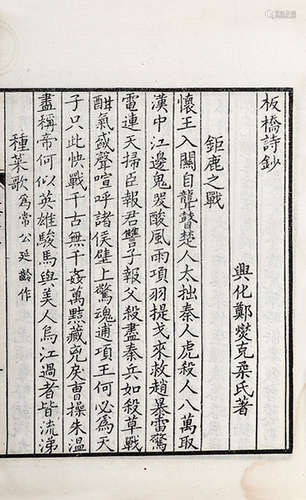 板橋詩鈔
興化鄭燮克柔氏著
鉅鹿之戰
懷王入關自聾瞽楚人太拙秦人虎殺人八萬取
漢中江邊鬼哭酸風雨項羽提戈來救趙暴雷驚
電連天掃臣報君讐子報父殺盡秦兵如殺草戰
酣氣盛聲喧呼諸侯壁上驚魂逋項王何必為天
子只此快戰千古無千姦萬黠藏兇戾曹操朱溫
盡稱帝何似英雄駿馬與美人烏江過者皆流涕
種菜歌為常公延齡作